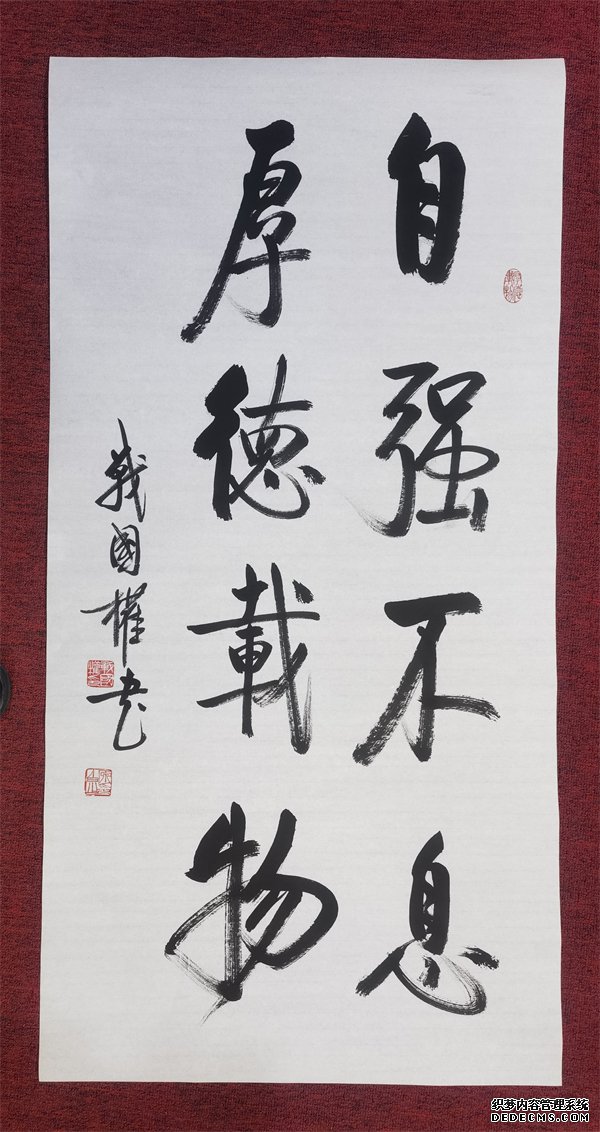 自强不息
厚德載物
戰國權书
织梦内容管理系统
DEDECMS.COM